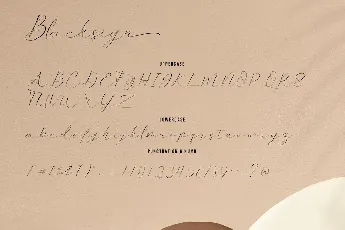 Blacksign
UPPERCASE
A B C D E F G H I J K L M N O P Q R S
T U V W X Y Z
LOWERCASE
a b c d e f g h i j k l m n o p q r s t u v w x y z
PUNCTUATION & NUMB